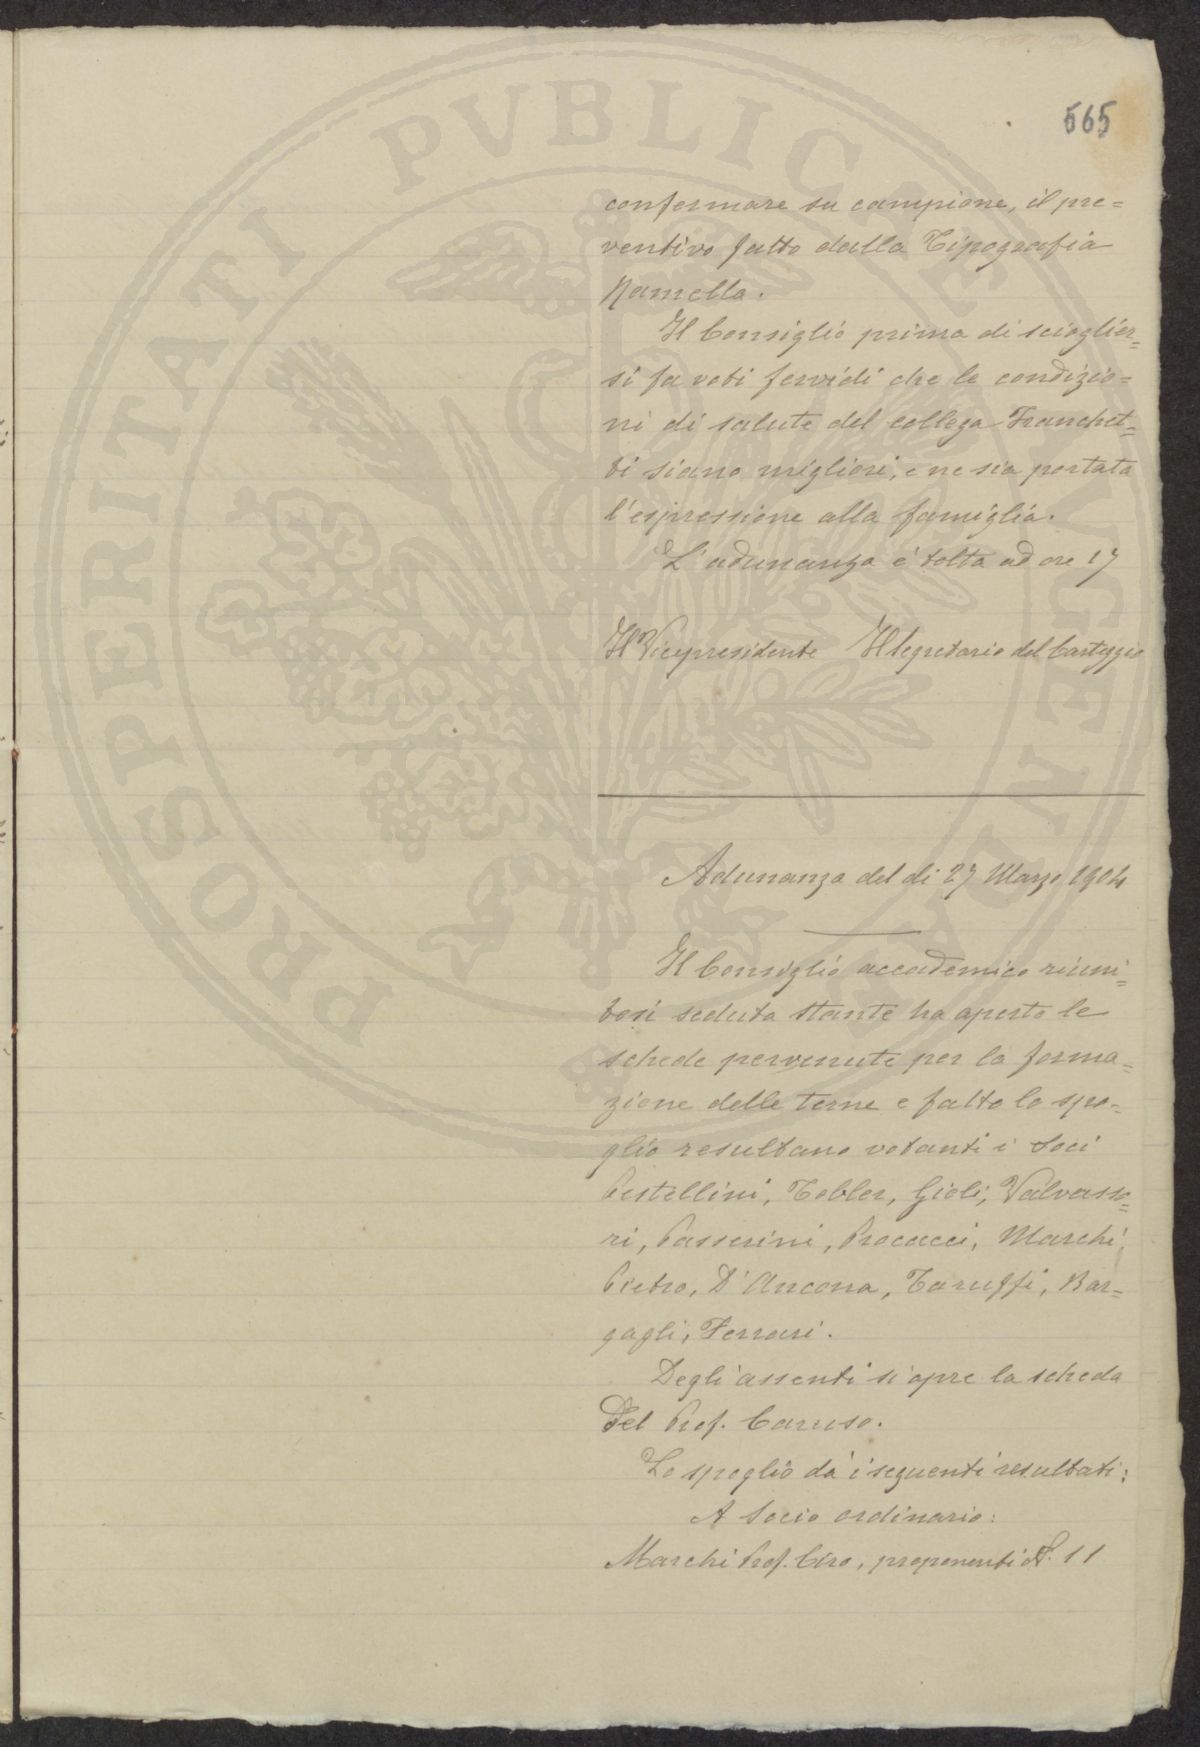 565
confermare su campione, il pre=
ventivo fatto dalla Tipografia
Ramella.
Il Consiglio prima di scioglier=
si fa voti fervidi che le condizio=
ni di salute del collega Franchet=
ti siano migliori, e ne sia portata
l'espressione alla famiglia.
L'adunanza è tolta ad ore 17
Il Vicepresidente Il Segretario del Carteggio
Adunanza del di 27 Marzo 1904
Il Consiglio accademico riuni=
tosi seduta stante ha aperto le
schede pervenute per la forma=
zione delle terne e fatto lo spo=
glio resultano votanti i Soci
Pestellini, Tobler, Gioli, Valvasso=
ri, Passerini, Procacci, Marchi
Pietro, D'Ancona, Taruffi, Bar=
gagli, Ferrari.
Degli assenti si apre la scheda
del Prof. Caruso.
Lo spoglio dà i seguenti resultati:
A Socio ordinario:
Marchi Prof. Ciro, proponenti N. 11
PROSPERITATI PVBLICAE AVGENDAE